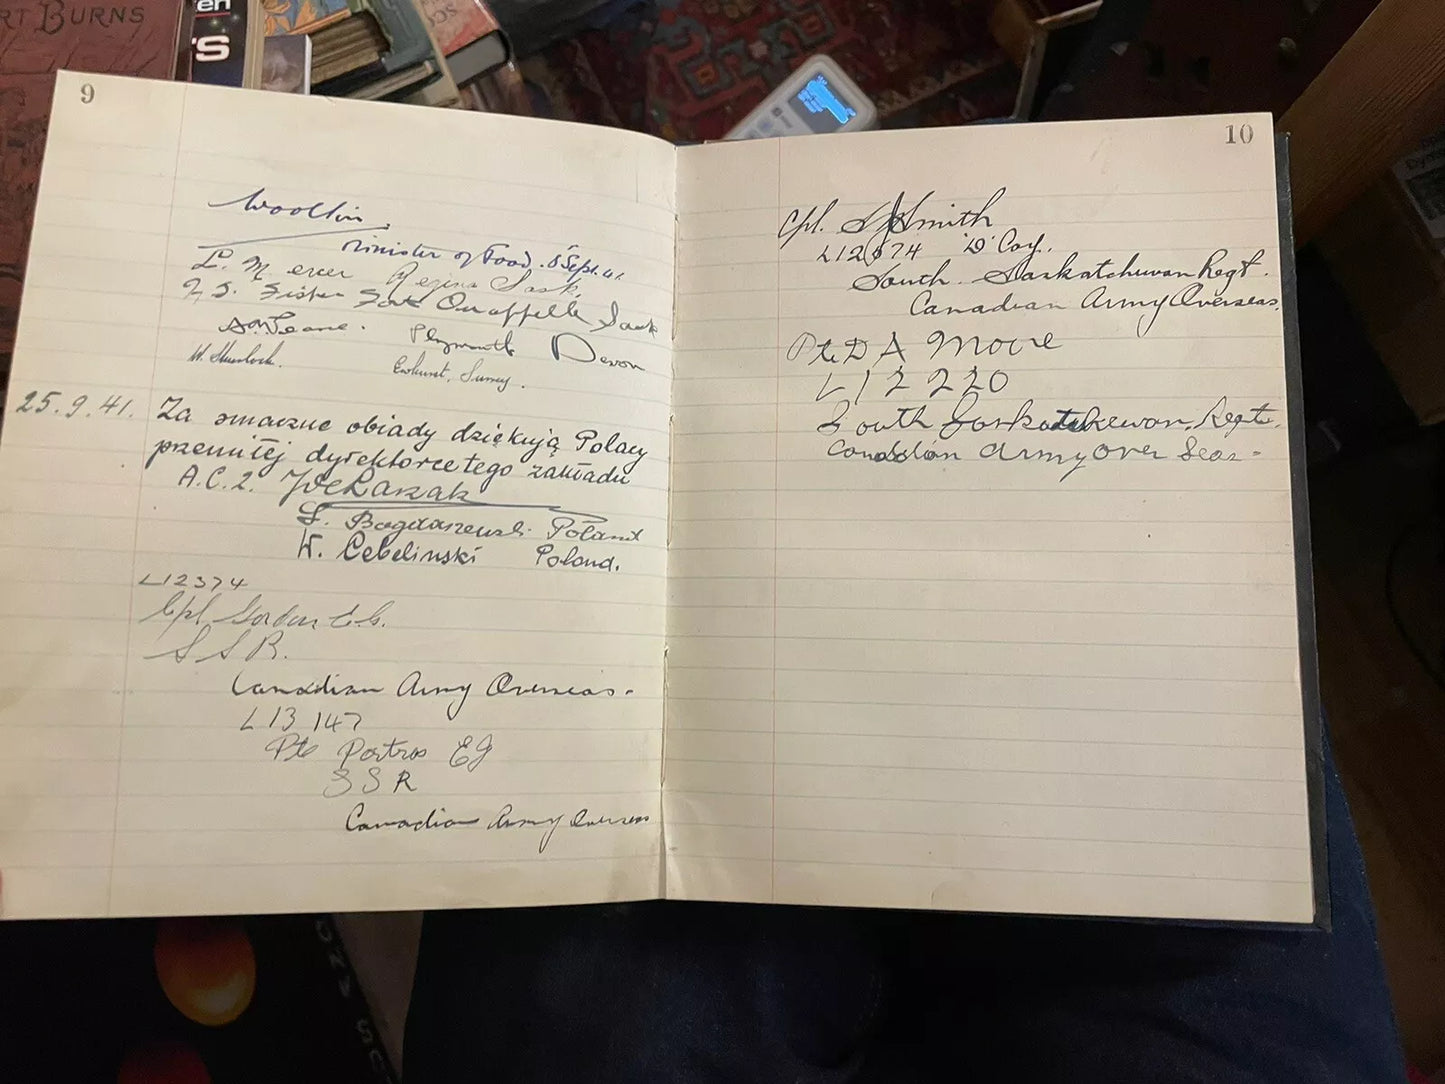 RT BURNS
en
S
SC
9
Woolton
Minister of Food. 8 Sept. 41.
L. Mercer Regina Sask.
Fort Qu'appelle Sask
Plymouth Devon
Ewhurst, Surrey.
25.9.41. Za smaczne obiady dziękują Polacy
przemiłej dyrektorce tego zakładu
A.C.2.
Bogdanewski Poland
W. Cebelinski Poland.
L12374
Cpl Gordon E.G.
S S R.
Canadian Army Overseas.
L13 147
Pte Portros EJ
S S R
Canadian Army Overseas
10
Cpl. S J Smith
L12674 'D' Coy.
South Saskatchewan Regt.
Canadian Army Overseas.
Pte D A Moore
L12220
South Saskatchewan Regt.
Canadian Army Over Seas.